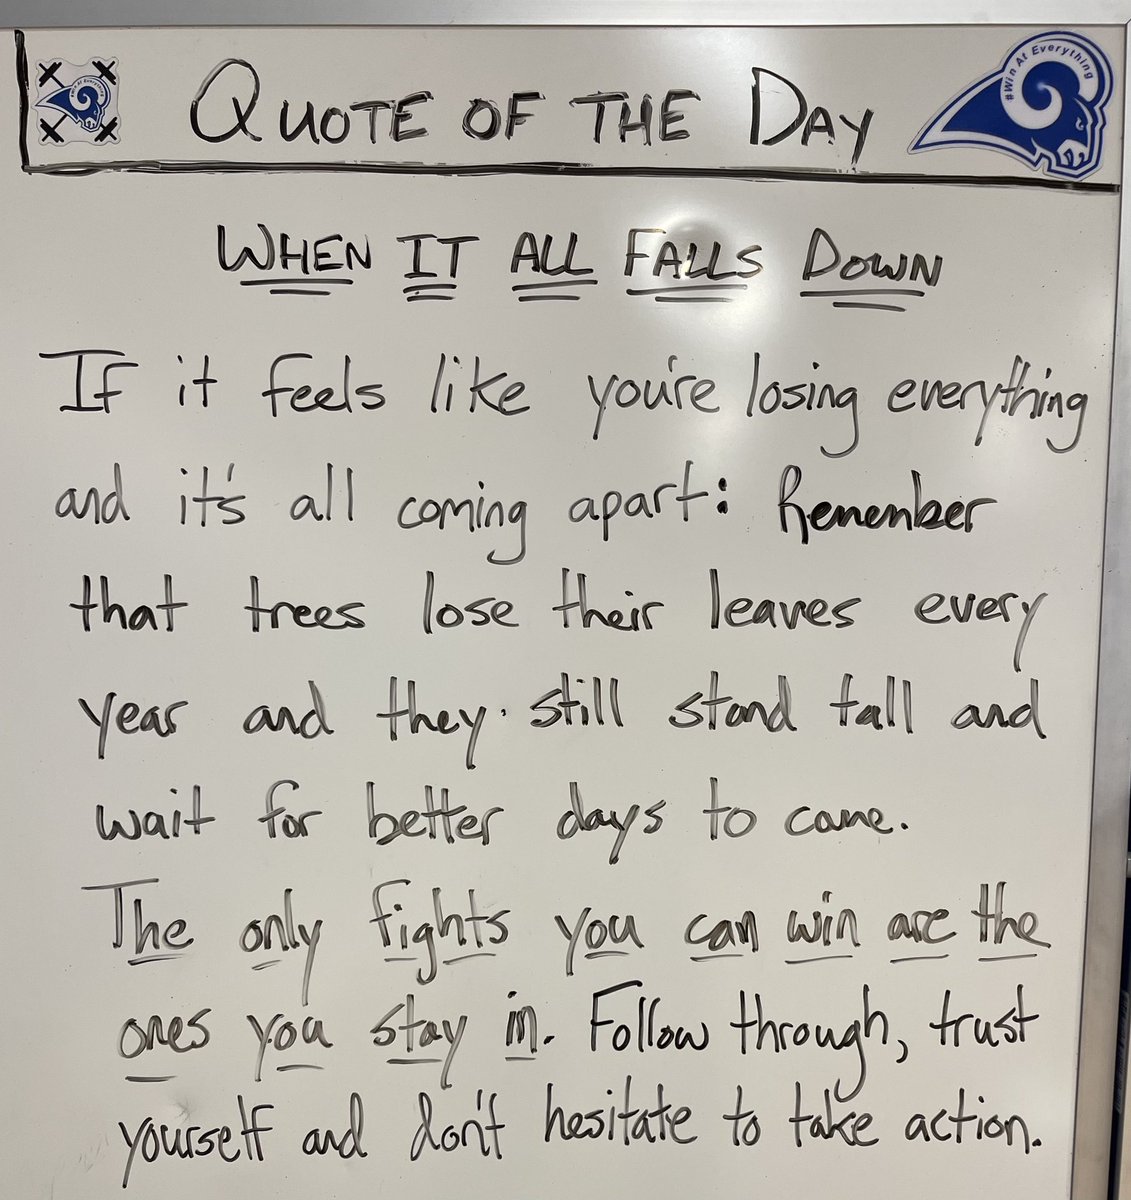 QUOTE OF THE DAY
#Win At Everything
WHEN IT ALL FALLS DOWN
If it feels like you're losing everything
and it's all coming apart: Remember
that trees lose their leaves every
year and they still stand tall and
wait for better days to come.
The only fights you can win are the
ones you stay in. Follow through, trust
yourself and don't hesitate to take action.